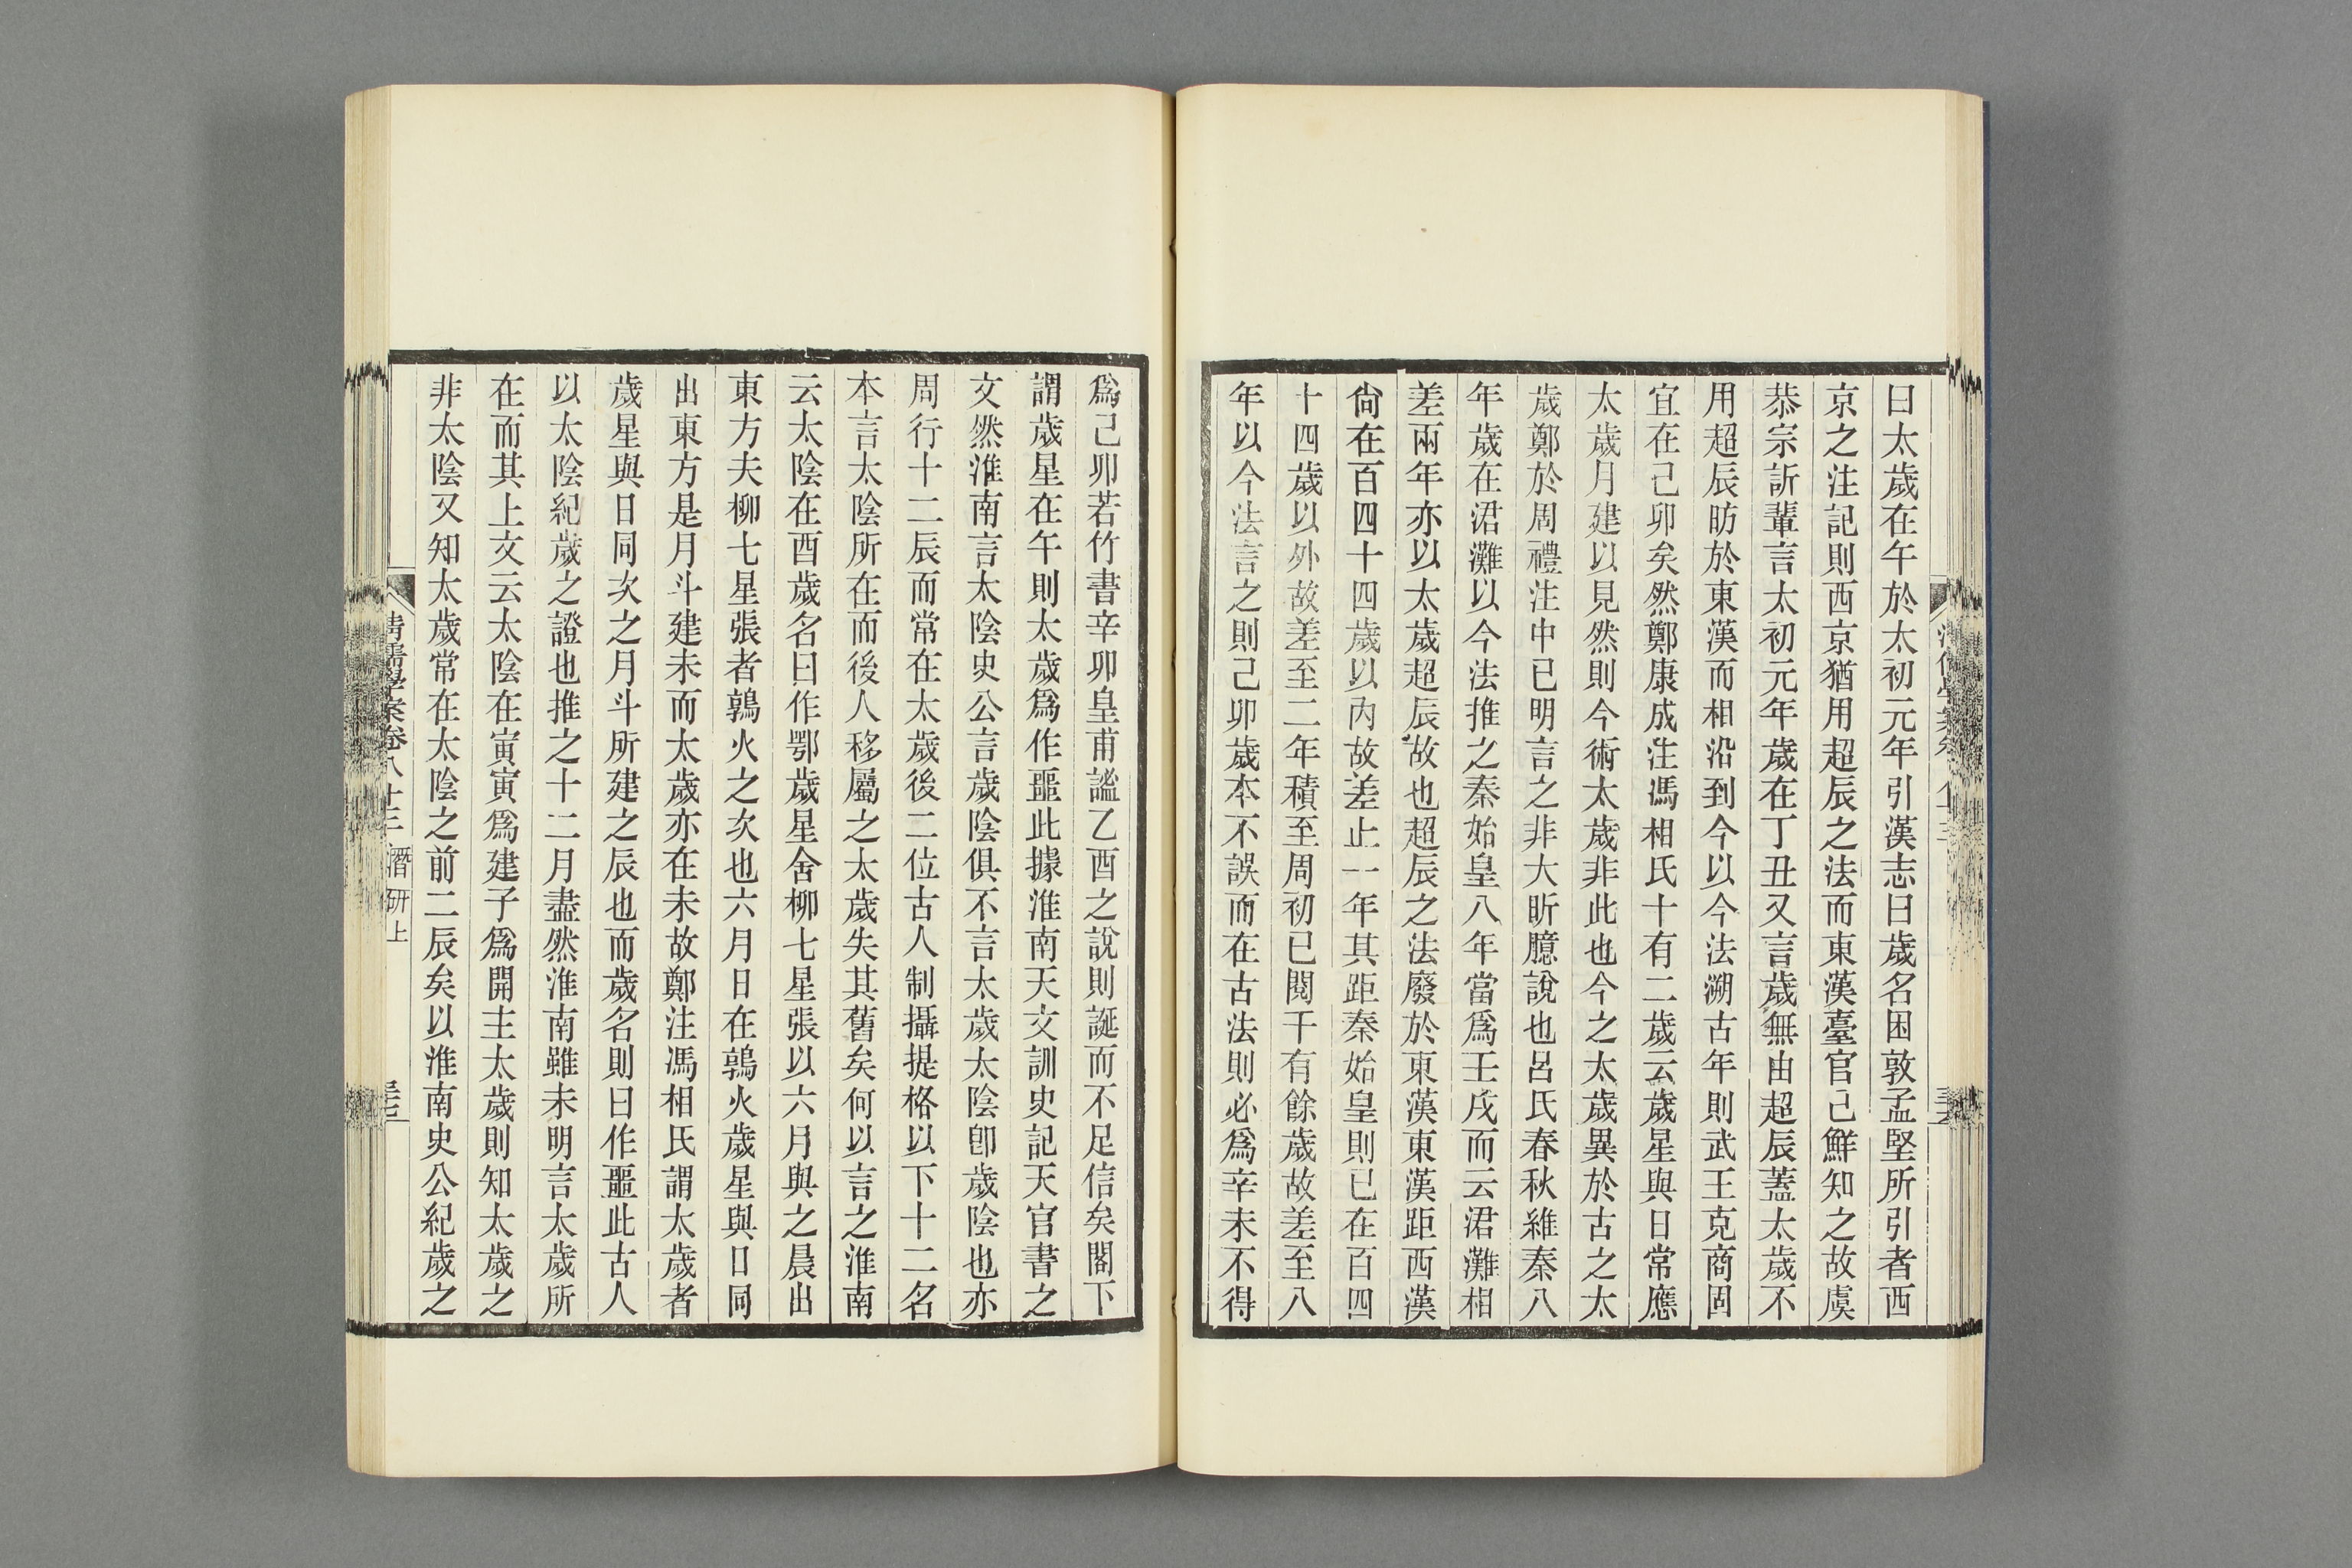 曰太歲在午於太初元年引漢志曰歲名困敦孟堅所引者西
京之注記則西京猶用超辰之法而東漢臺官己鮮知之故虞
恭宗訢輩言太初元年歲在丁丑又言歲無由超辰蓋太歲不
用超辰昉於東漢而相沿到今以今法溯古年則武王克商固
宜在己卯矣然鄭康成注馮相氏十有二歲云歲星與日常應
太歲月建以見然則今術太歲非此也今之太歲異於古之太
歲鄭於周禮注中已明言之非大昕臆說也呂氏春秋維秦八
年歲在涒灘以今法推之秦始皇八年當爲壬戌而云涒灘相
差兩年亦以太歲超辰故也超辰之法廢於東漢東漢距西漢
尙在百四十四歲以內故差止一年其距秦始皇則已在百四
十四歲以外故差至二年積至周初已閱千有餘歲故差至八
年以今法言之則己卯歲本不誤而在古法則必爲辛未不得
爲己卯若竹書辛卯皇甫謐乙酉之說則誕而不足信矣閣下
謂歲星在午則太歲爲作噩此據淮南天文訓史記天官書之
文然淮南言太陰史公言歲陰俱不言太歲太陰卽歲陰也亦
周行十二辰而常在太歲後二位古人制攝提格以下十二名
本言太陰所在而後人移屬之太歲失其舊矣何以言之淮南
云太陰在酉歲名曰作鄂歲星舍柳七星張以六月與之晨出
東方夫柳七星張者鶉火之次也六月日在鶉火歲星與日同
出東方是月斗建未而太歲亦在未故鄭注馮相氏謂太歲者
歲星與日同次之月斗所建之辰也而歲名則曰作噩此古人
以太陰紀歲之證也推之十二月盡然淮南雖未明言太歲所
在而其上文云太陰在寅寅爲建子爲開主太歲則知太歲之
非太陰又知太歲常在太陰之前二辰矣以淮南史公紀歲之
清儒學案卷八十三 潛研上